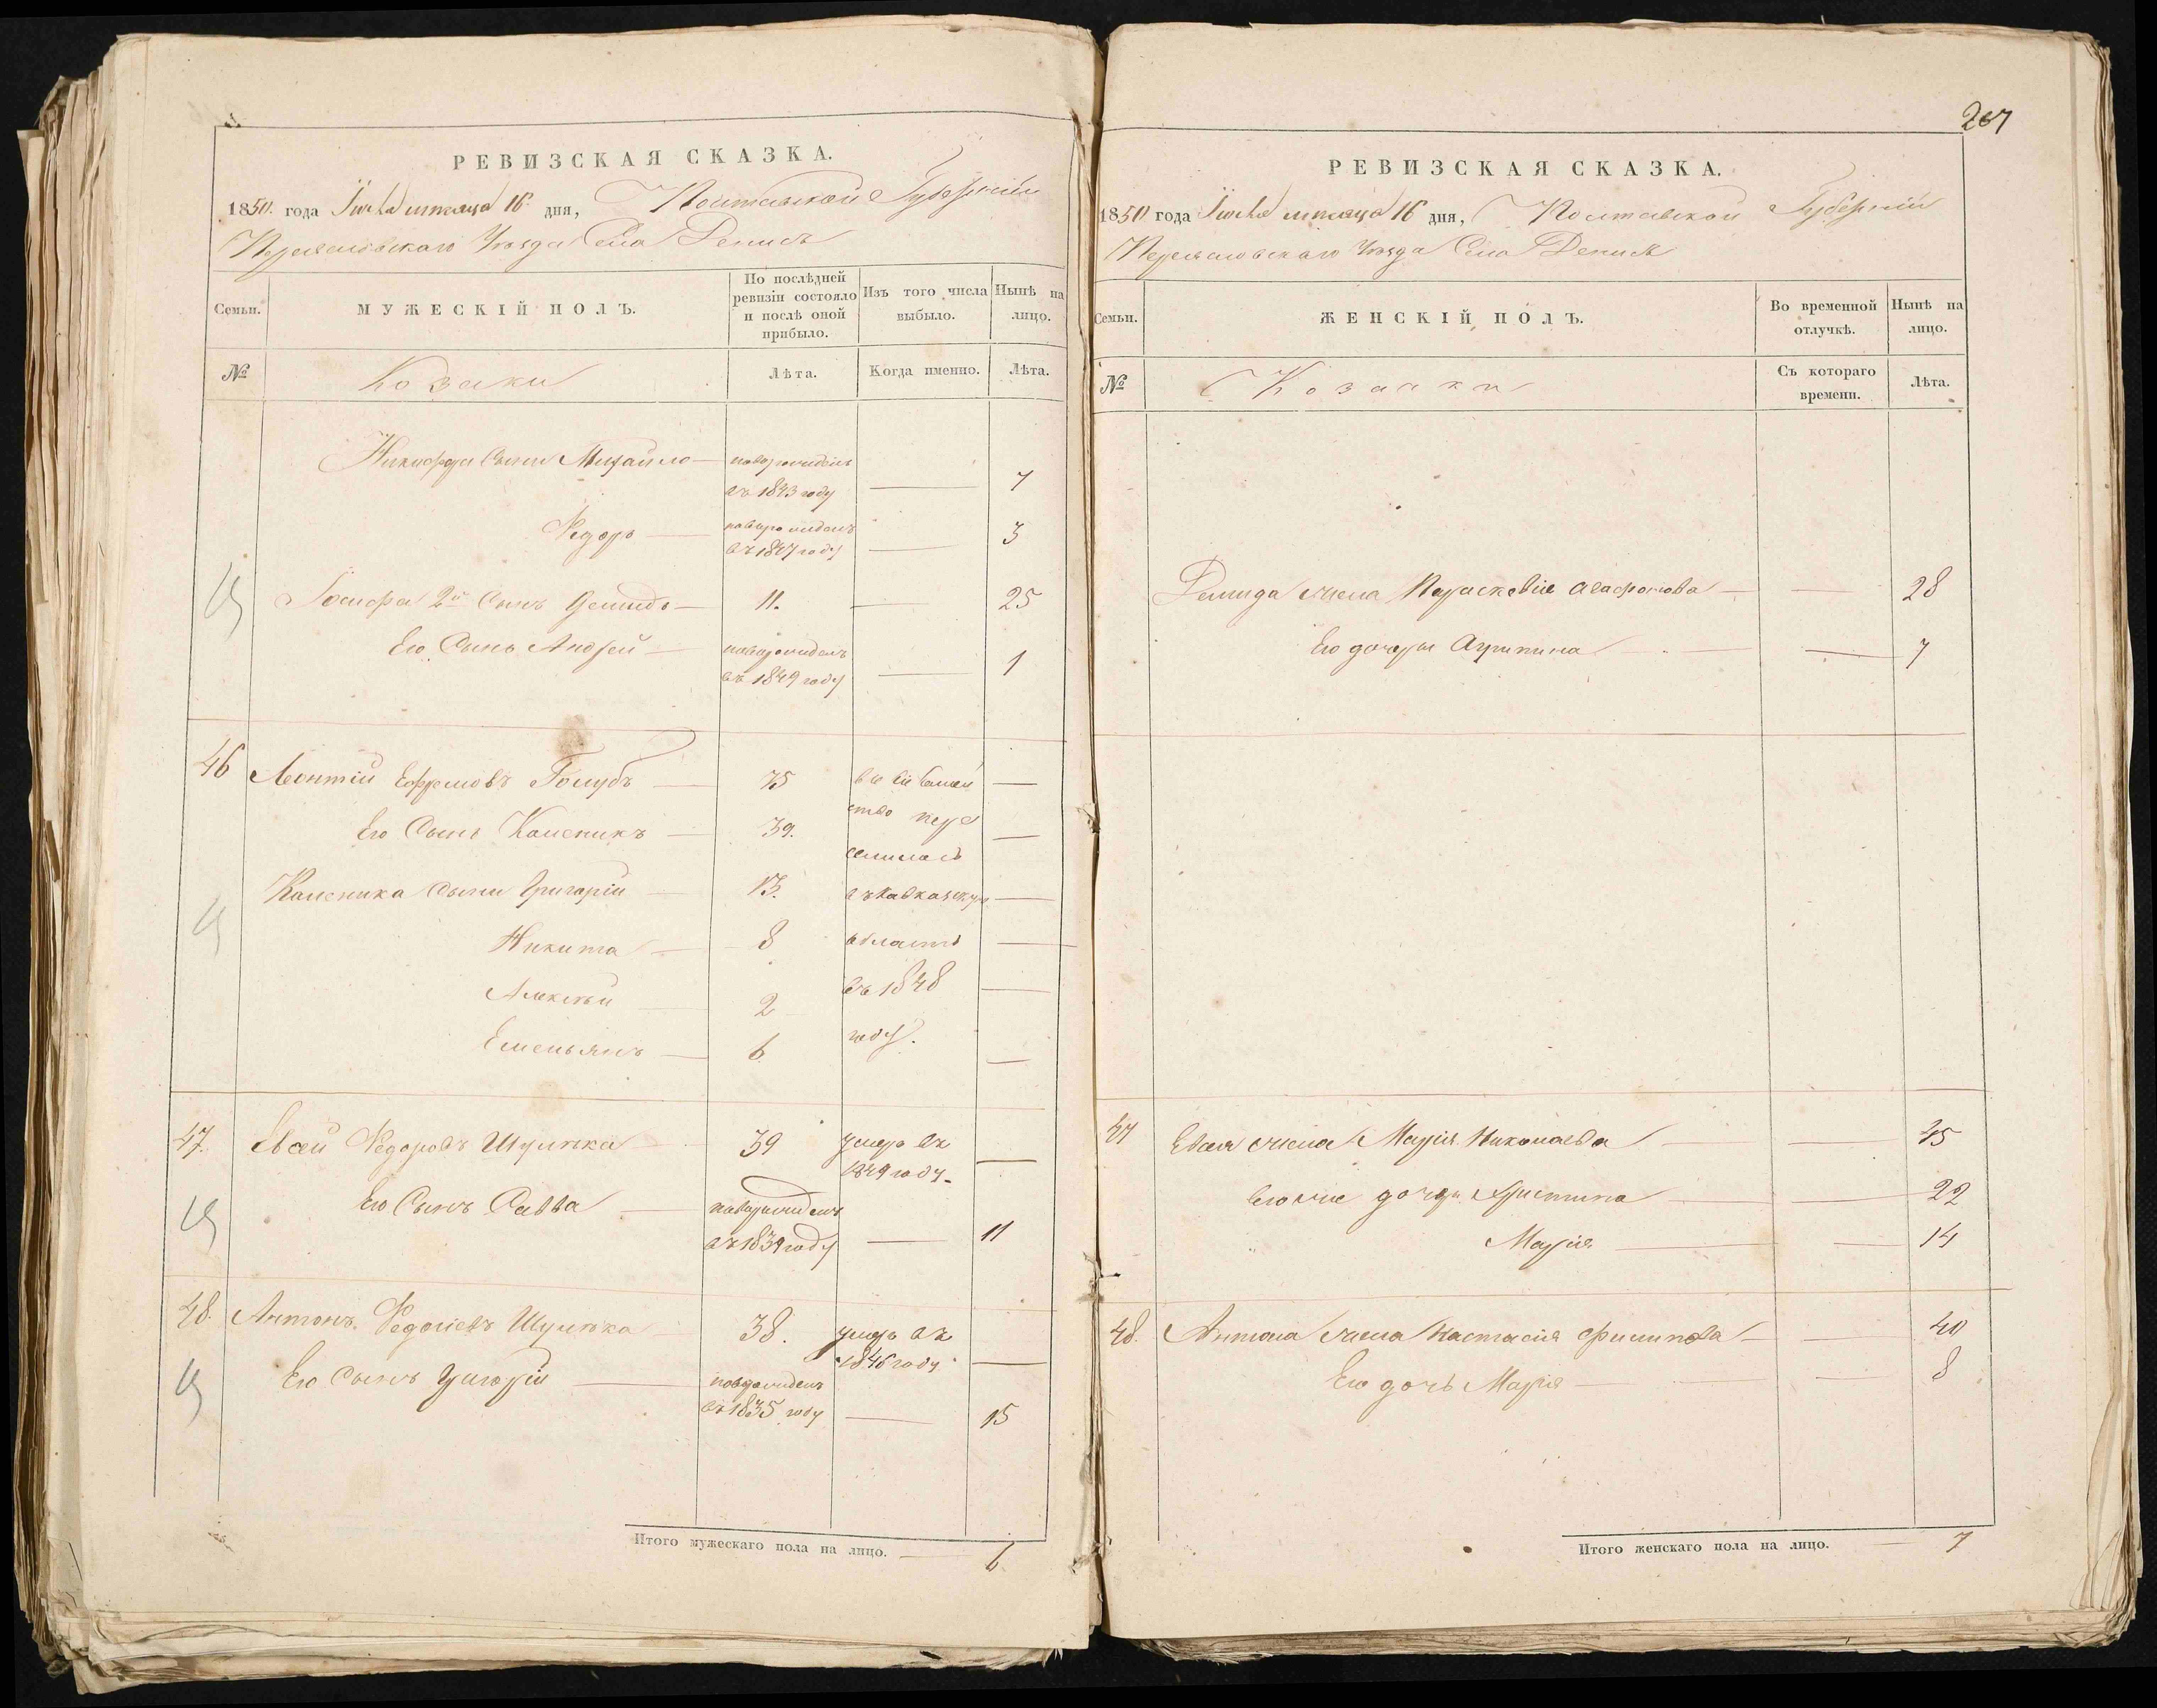 РЕВИЗСКАЯ СКАЗКА.
1850 года Іюля мѣсяца 16 дня, Полтавской Губерніи
Переяславскаго Уѣзда Села Денисъ
Семьи.
МУЖЕСКІЙ ПОЛЪ.
По послѣдней ревизіи состояло и послѣ оной прибыло.
Изъ того числа выбыло.
Нынѣ на лицо.
№
Козаки
Лѣта.
Когда именно.
Лѣта.
Никифора Сыни Михайло новорожденъ
въ 1843 году 7
Федоръ новорожденъ
въ 1847 году 3
Іосифа 2й Сынъ Демидъ 11. 25
Его Сынъ Андрей новорожденъ
въ 1849 году 1
46 Леонтій Ефремовъ Голубъ 75
Его Сынъ Каленикъ 39.
ство пере
селилось
Каленика Сыни Григорій 13. въ Кавказскую
Никита 8 область
Алексѣй 2 въ 1848
Емельянъ 6 году.
47. Евсей Федоровъ Шулѣка 39 умеръ въ
1849 году
Его Сынъ Савва новорожденъ
въ 1839 году 11
48. Антонъ Федоровъ Шулѣка 38. умеръ въ
1846 году
Его Сынъ Григорій новорожденъ
въ 1835 году 15
Итого мужескаго пола на лицо. 6
267
РЕВИЗСКАЯ СКАЗКА.
1850 года Іюля мѣсяца 16 дня, Полтавской Губерніи
Переяславскаго Уѣзда Села Денисъ
Семьи.
ЖЕНСКІЙ ПОЛЪ.
Во временной отлучкѣ.
Нынѣ на лицо.
№
Козачки
Съ котораго времени.
Лѣта.
Демида жена Параскевія Агафонова 28
Его дочеры Агрипина 7
47 Евсея жена Марія Николаева 45
Его же дочери Христина 22
Марія 14
48. Антона жена Настасія Филипова 40
Его дочь Марія 8
Итого женскаго пола на лицо. 7